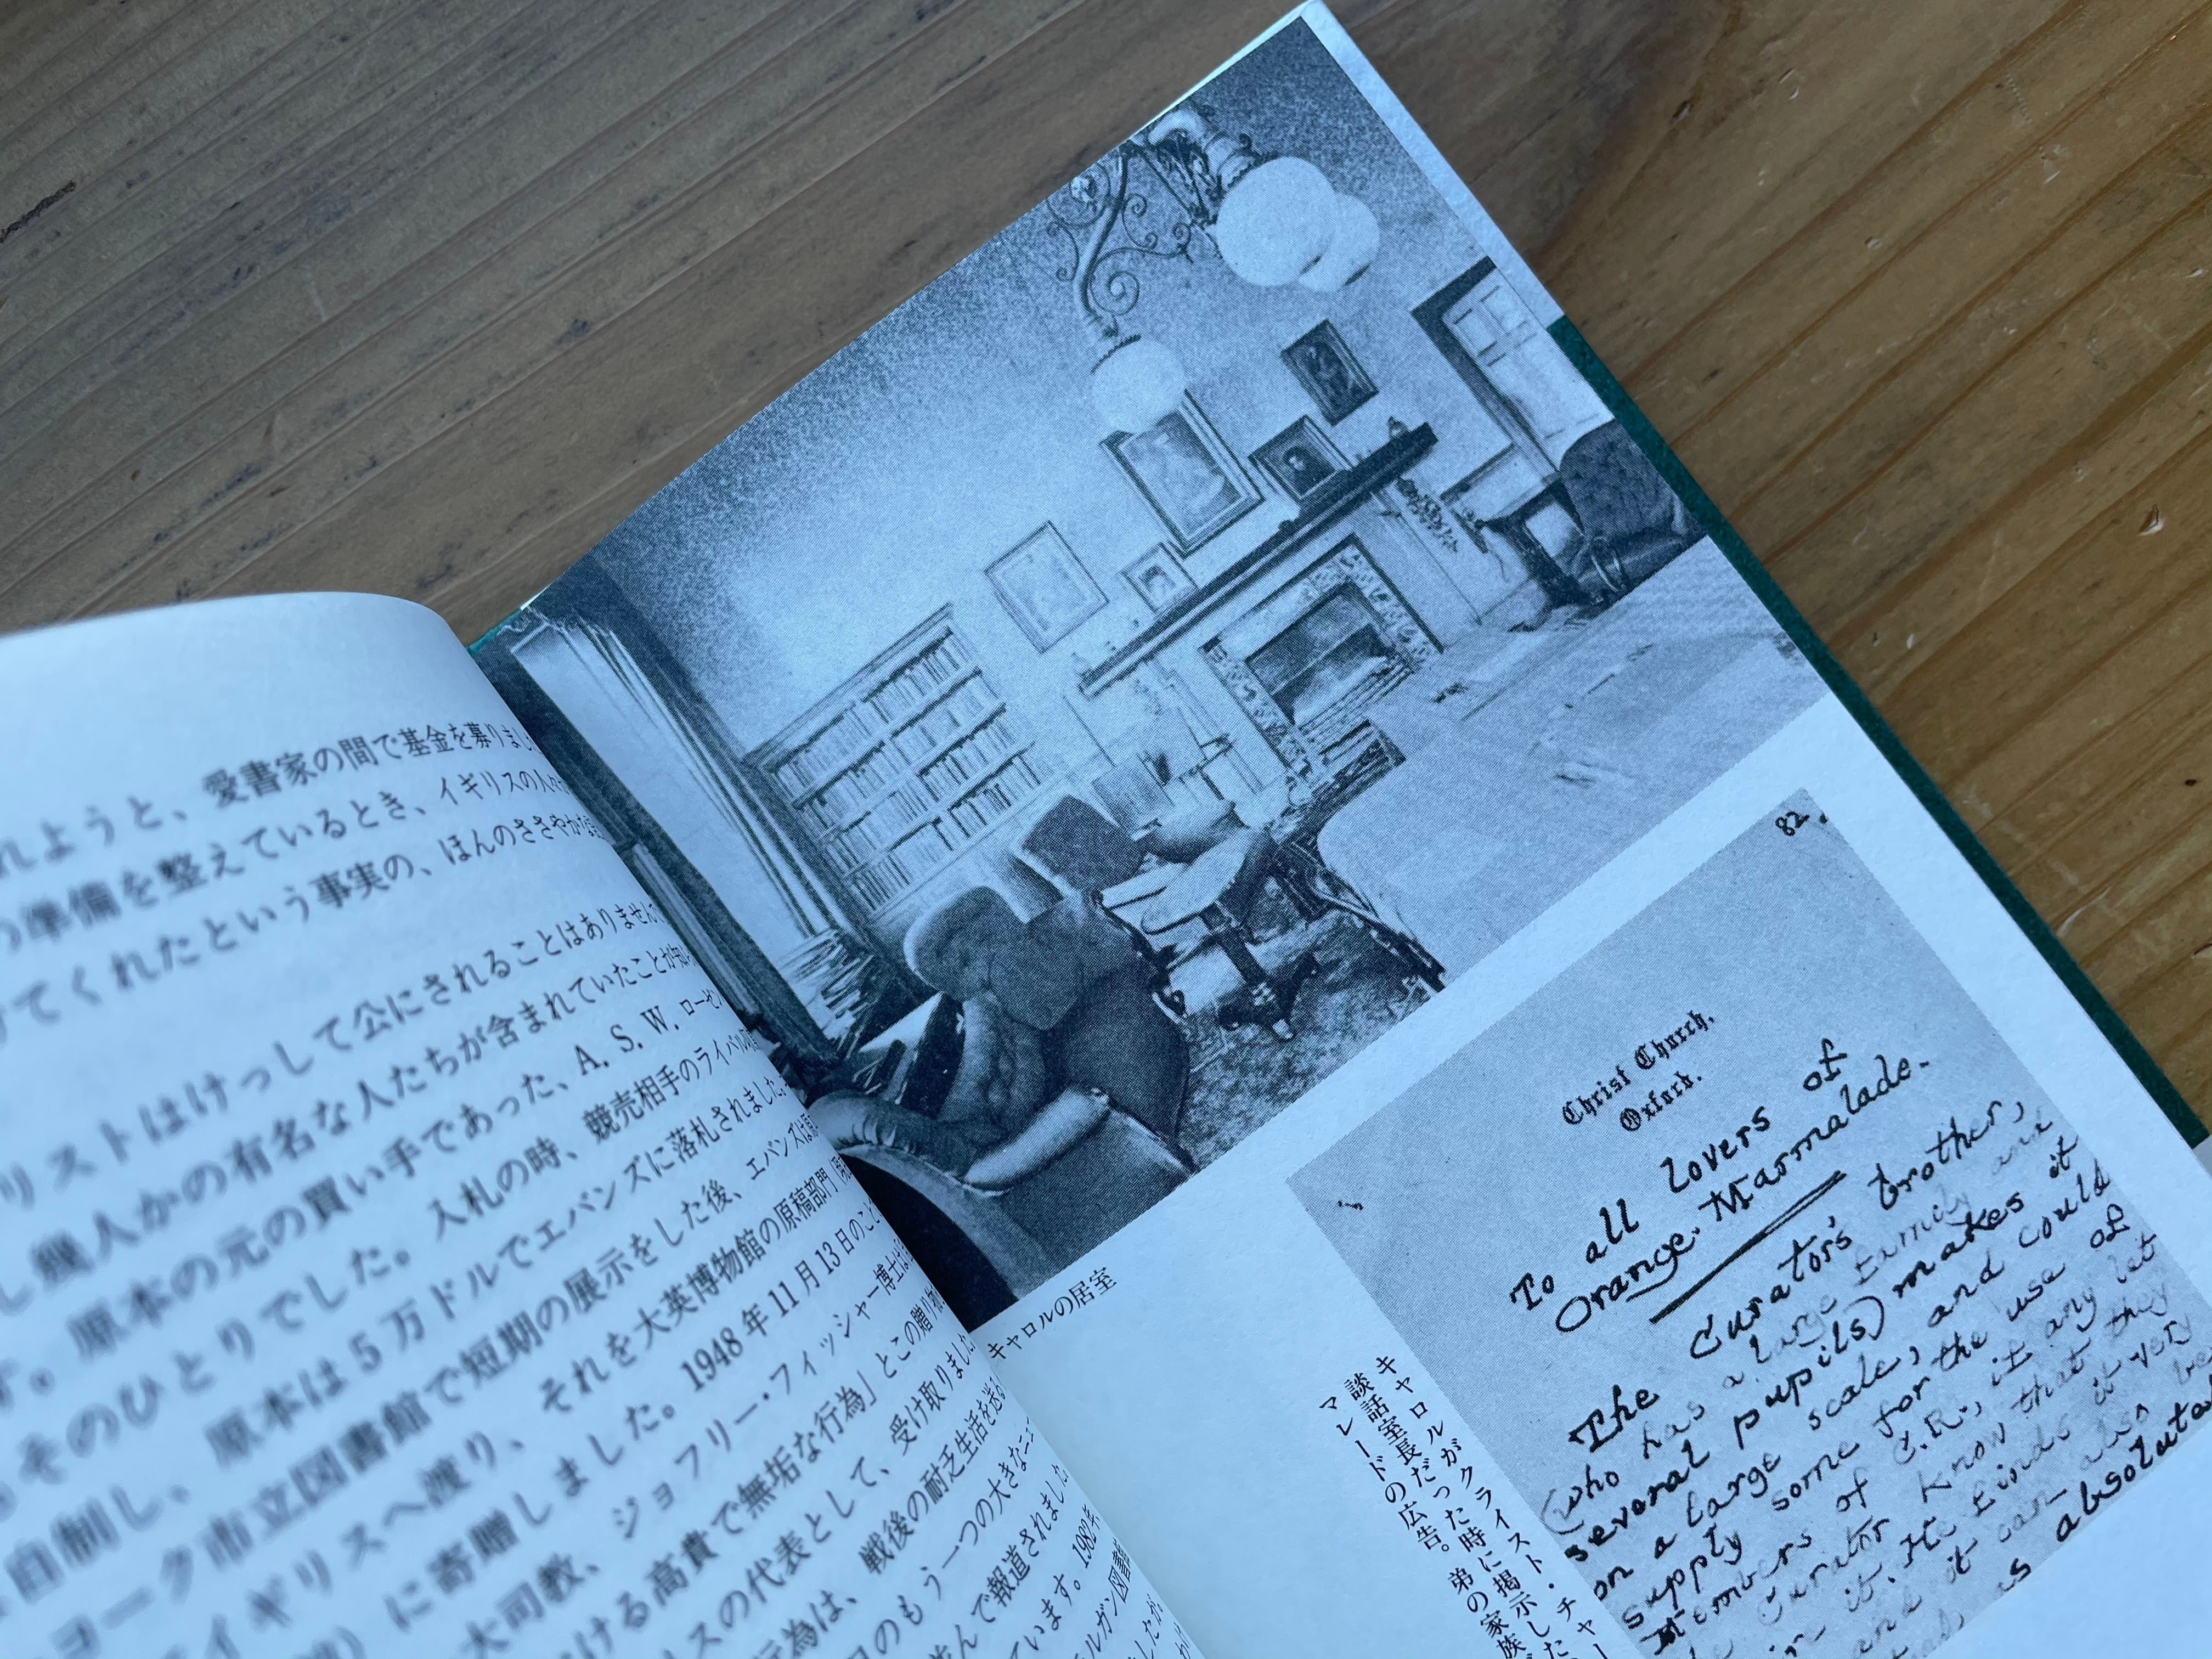 れようと、愛書家の間で基金を募りまし
の準備を整えているとき、イギリスの人々
けてくれたという事実の、ほんのささやかな
リストはけっして公にされることはありません
し幾人かの有名な人たちが含まれていたことが知
す。原本の元の買い手であった、A. S. W. ローゼン
そのひとりでした。入札の時、競売相手のライバル
自制し、原本は5万ドルでエバンズに落札されました
ヨーク市立図書館で短期の展示をした後、エバンズは
イギリスへ渡り、それを大英博物館の原稿部門
に寄贈しました。1948年11月13日のこと
大司教、ジョフリー・フィッシャー博士は
ける高貴で無垢な行為」とこの贈り物
スの代表として、受け取りました
行為は、戦後の耐乏生活を送る
のもう一つの大きなニュ
並んで報道されました
ています。1982年
ルガン図書館
したが
キャロルの居室
82.
Christ Church,
Oxford.
To all lovers of
Orange Marmalade.
The Curator's brother,
(who has a large family and
several pupils) makes it
on a large scale, and could
supply some for the use of
Members of C.R., if any let
the Curator know that they
in it. He finds it very
and it can also be
as absolute
キャロルがクライスト・チャー
談話室長だった時に掲示した
マレードの広告。弟の家族